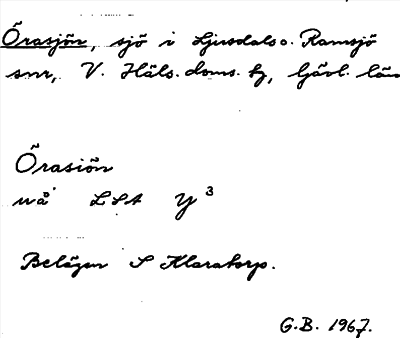 Örasjön, sjö i Ljusdals o. Ramsjö
snr, V. Häls. doms. hg, Gävl. län
Örasiön
uå LSA Y³
Belägen S Klaratorp.
G.B. 1967.